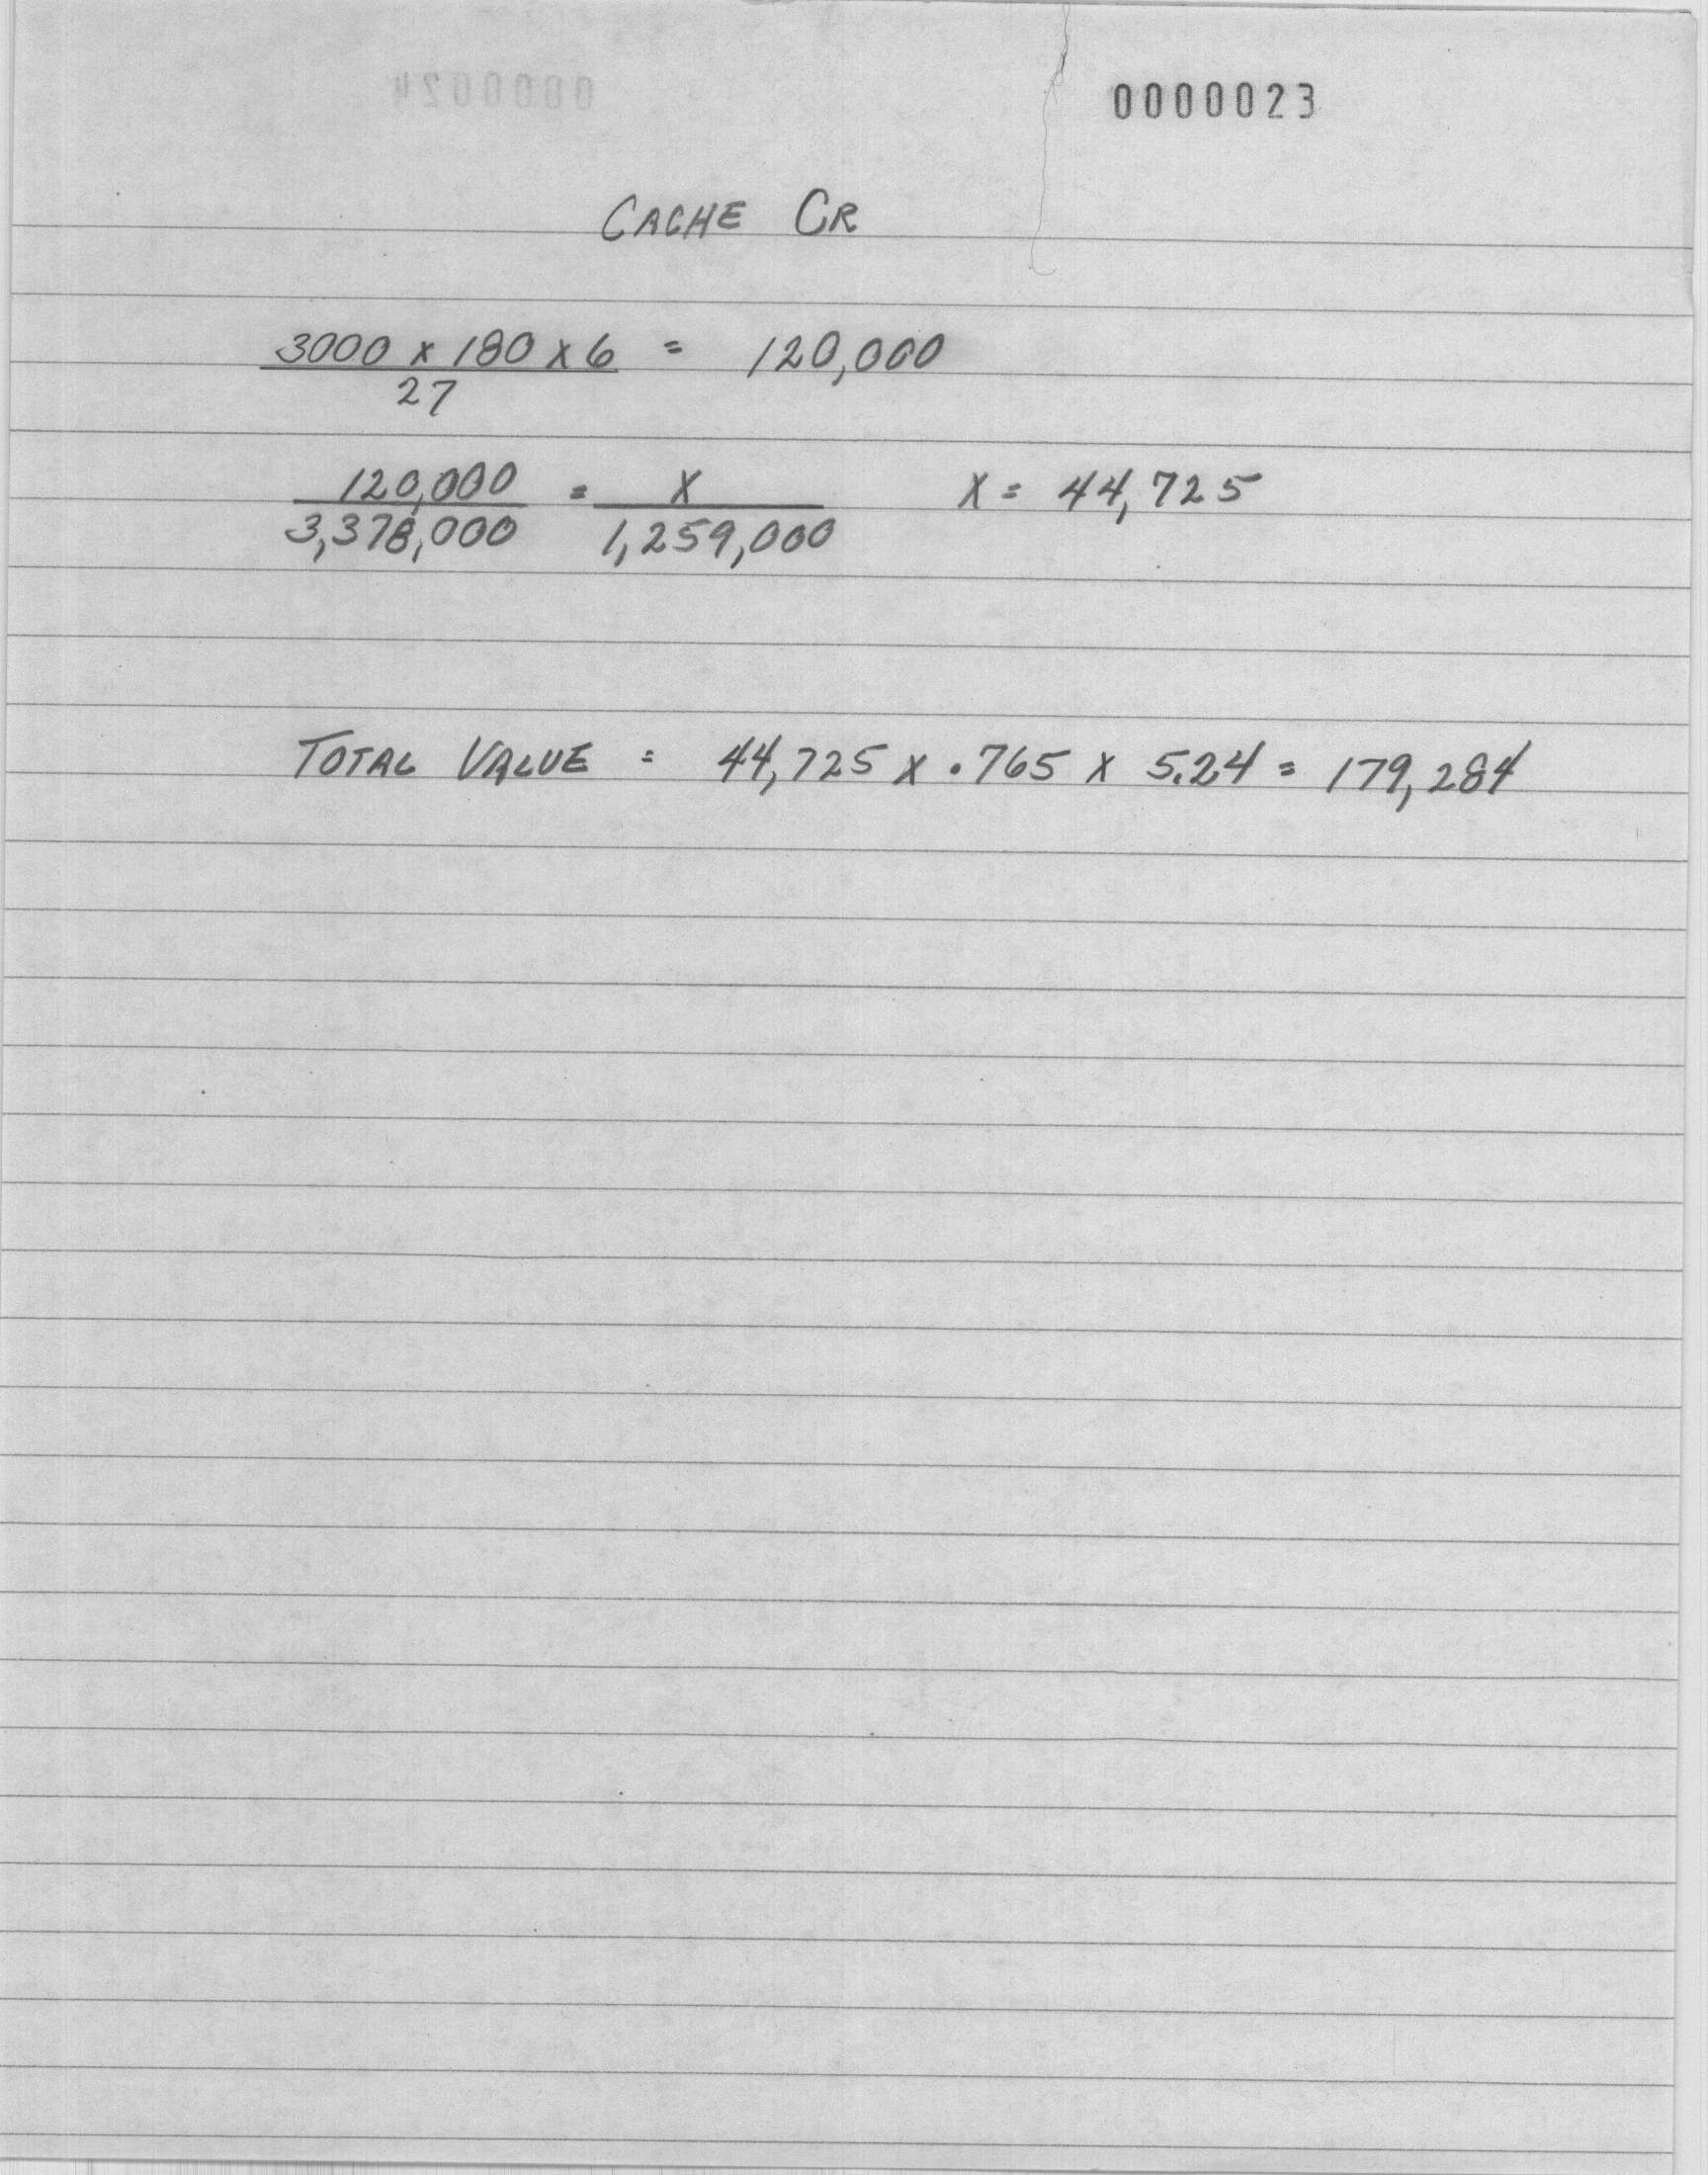 0000024
0000023
CACHE CR
3000 x 180 x 6 = 120,000
27
120,000 = X X = 44,725
3,378,000 1,259,000
TOTAL VALUE = 44,725 x .765 x 5.24 = 179,284